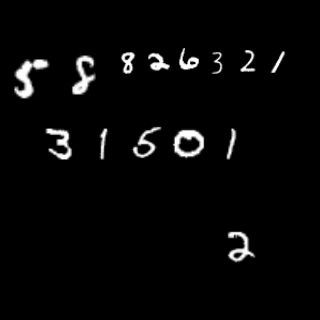 58826321
31501
2